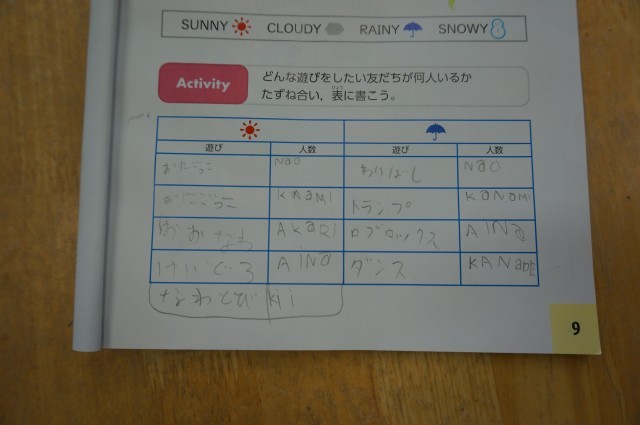 SUNNY CLOUDY RAINY SNOWY
Activity
どんな遊びをしたい友だちが何人いるか
たずね合い，表に書こう。
ひょう
遊び 人数 遊び 人数
おにごっこ NaO わりばし NaO
おにごっこ KNAMI トランプ KaNaMi
おおなわ AKaRI ロブロックス AiNa
けいどろ AiNa ダンス KANaDE
なわとび kii
9